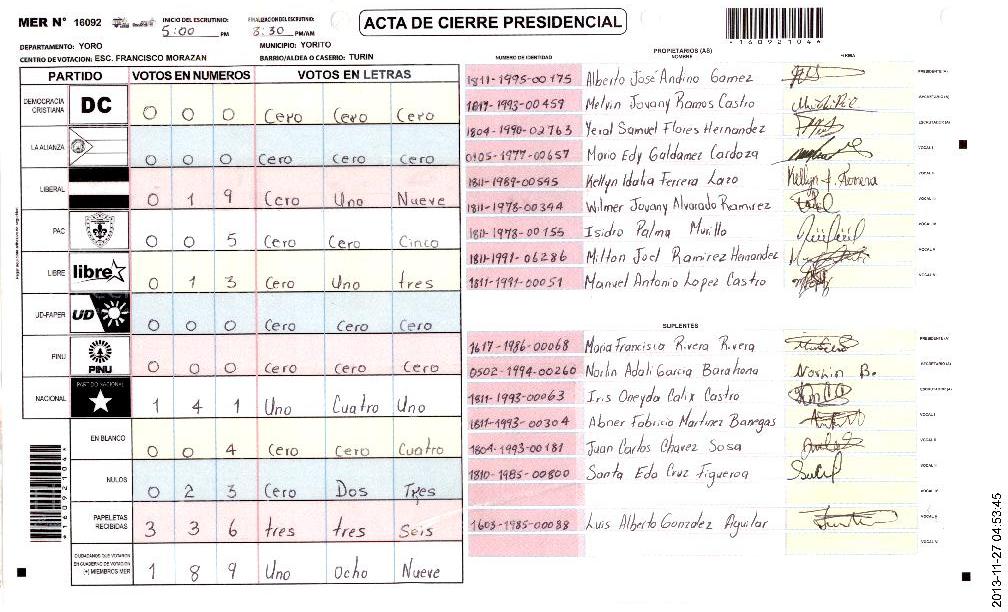 MER N° 16092
INICIO DEL ESCRUTINIO: 5:00 PM
FINALIZACION DEL ESCRUTINIO: 8:30 PM/AM
ACTA DE CIERRE PRESIDENCIAL
*160921044*
DEPARTAMENTO: YORO
MUNICIPIO: YORITO
CENTRO DE VOTACION: ESC. FRANCISCO MORAZAN
BARRIO/ALDEA O CASERIO: TURIN
PARTIDO VOTOS EN NUMEROS VOTOS EN LETRAS
DEMOCRACIA CRISTIANA DC 0 0 0 Cero Cero Cero
LA ALIANZA 0 0 0 Cero Cero Cero
LIBERAL 0 1 9 Cero Uno Nueve
PAC 0 0 5 Cero Cero Cinco
LIBRE libre 0 1 3 Cero Uno tres
UD-FAPER UD 0 0 0 Cero Cero Cero
PINU PINU 0 0 0 Cero Cero Cero
NACIONAL PARTIDO NACIONAL 1 4 1 Uno Cuatro Uno
EN BLANCO 0 0 4 Cero Cero Cuatro
NULOS 0 2 3 Cero Dos Tres
PAPELETAS RECIBIDAS 3 3 6 tres tres Seis
CIUDADANOS QUE VOTARON EN CUADERNO DE VOTACION (+) MIEMBROS MER 1 8 9 Uno Ocho Nueve
*160921044*
PROPIETARIOS (AS)
NUMERO DE IDENTIDAD NOMBRE FIRMA
1811-1995-00175 Alberto José Andino Gomez PRESIDENTE (A)
1817-1993-00459 Melvin Jovany Ramos Castro SECRETARIO (A)
1804-1990-02763 Yeral Samuel Flores Hernandez ESCRUTADOR (A)
0105-1977-00657 Mario Edy Galdamez Cardoza VOCAL I
1811-1989-00595 Kellyn Idalia Ferrera Lazo VOCAL II
1811-1978-00394 Wilmer Jovany Alvarado Ramirez VOCAL III
1811-1978-00155 Isidro Palma Murillo VOCAL IV
1811-1991-06286 Milton Joel Ramirez Hernandez VOCAL V
1811-1991-00051 Manuel Antonio Lopez Castro VOCAL VI
SUPLENTES
1617-1986-00068 Maria Francisca Rivera Rivera PRESIDENTE (A)
0502-1994-00260 Norlin Adali Garcia Barahona SECRETARIO (A)
1811-1993-00063 Iris Oneyda Calix Castro ESCRUTADOR (A)
1811-1993-00304 Abner Fabricio Martinez Banegas VOCAL I
1804-1993-00181 Juan Carlos Chavez Sosa VOCAL II
1810-1985-00800 Santa Eda Cruz Figueroa VOCAL III
VOCAL IV
1603-1985-00088 Luis Alberto Gonzalez Aguilar VOCAL V
VOCAL VI
2013-11-27 04:53:45